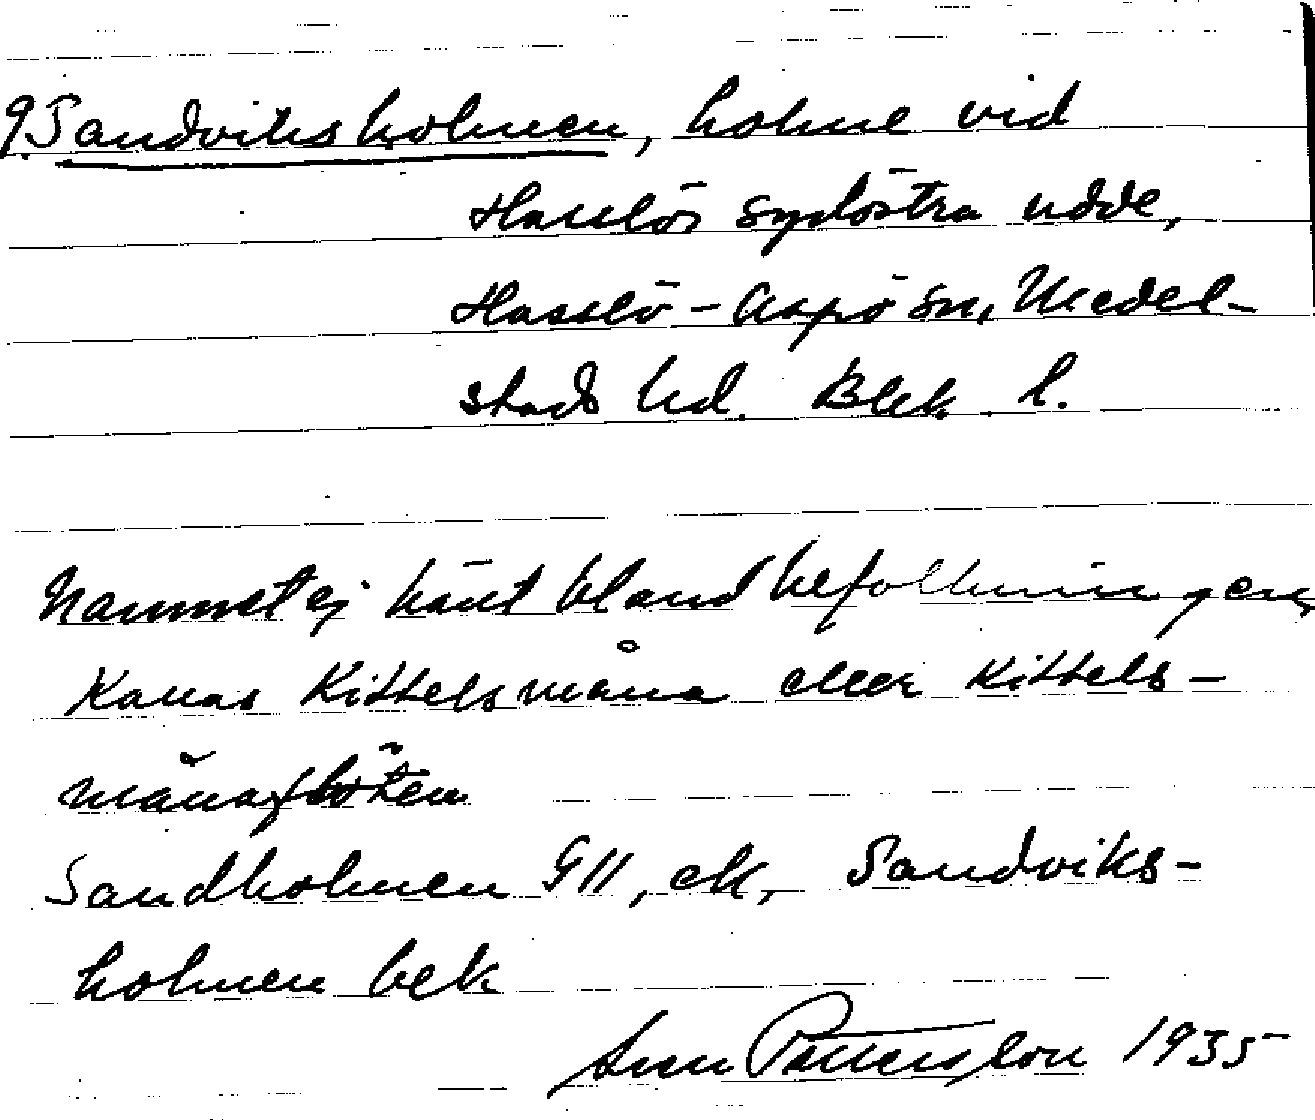 9. Sandviksholmen, holme vid
Hasslös sydöstra udde,
Hasslö-Aspö sn, Medel-
stads hd. Blek. l.
Namnet ej känt bland befolkningen,
Kanas Kittelsmåna eller Kittels-
månaflöten
Sandholmen GII, ek, Sandviks-
holmen bek
Sven Patterson 1935